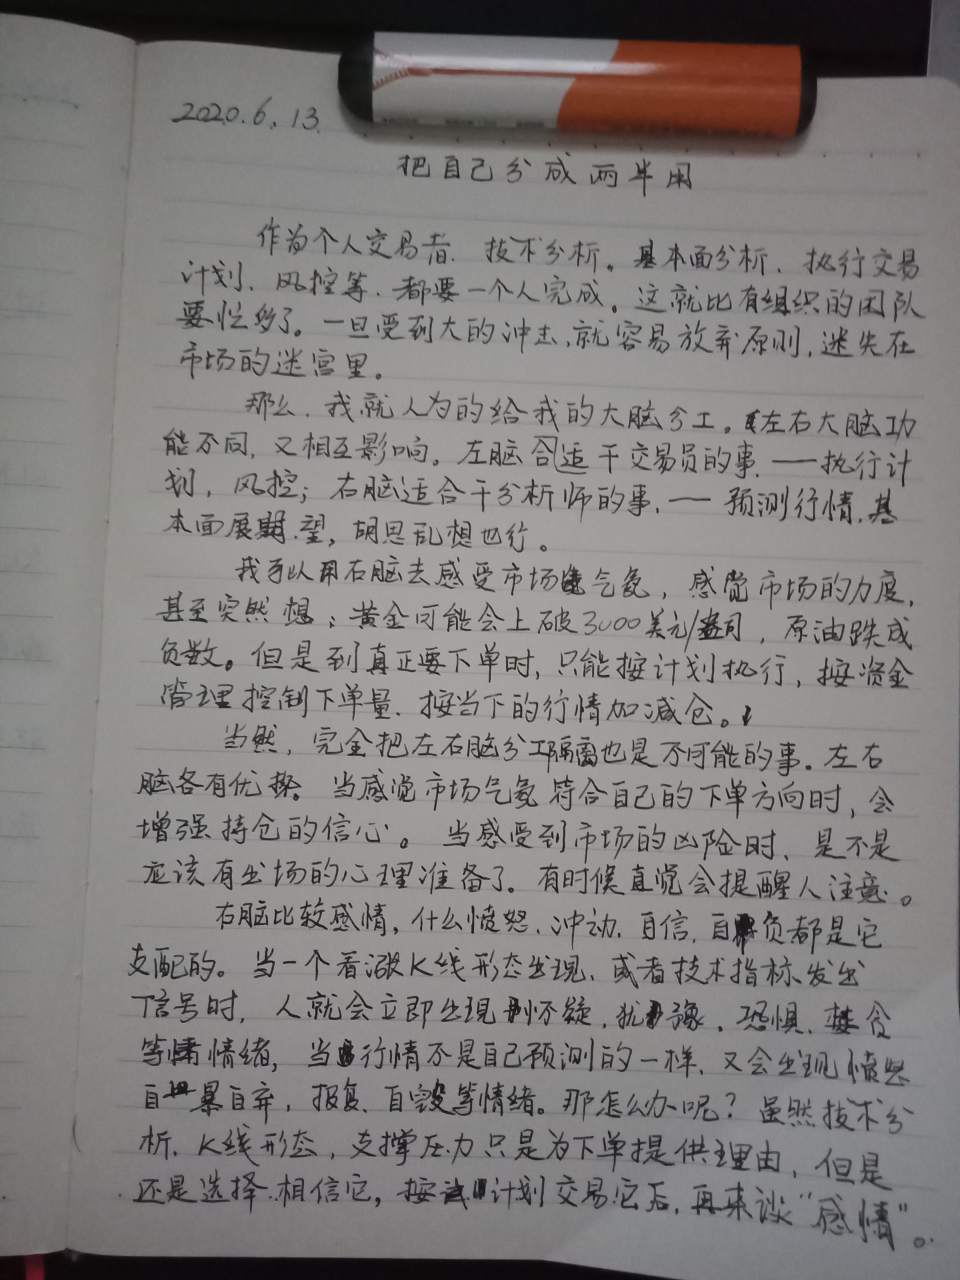 2020.6.13.
把自己分成两半用
作为个人交易者、技术分析。基本面分析、执行交易
计划、风控等、都要一个人完成。这就比有组织的团队
要忙多了。一旦受到大的冲击,就容易放弃原则,迷失在
市场的迷宫里。
那么、我就人为的给我的大脑分工。左右大脑功
能不同,又相互影响。左脑合适干交易员的事、——执行计
划,风控;右脑适合干分析师的事、——预测行情、基
本面展望,胡思乱想也行。
我可以用右脑去感受市场气氛,感觉市场的力度,
甚至突然想:黄金可能会上破3000美元/盎司,原油跌成
负数。但是到真正要下单时,只能按计划执行,按资金
管理控制下单量、按当下的行情加减仓。
当然,完全把左右脑分工隔离也是不可能的事。左右
脑各有优势。当感觉市场气氛符合自己的下单方向时,会
增强持仓的信心。当感受到市场的凶险时、是不是
应该有出场的心理准备了。有时候直觉会提醒人注意。
右脑比较感情,什么愤怒、冲动、自信、自负都是它
支配的。当一个看涨K线形态出现、或者技术指标发出
信号时,人就会立即出现怀疑,犹豫、恐惧、贪
等情绪,当行情不是自己预测的一样、又会出现愤怒
自暴自弃,报复、自毁等情绪。那怎么办呢?虽然技术分
析、K线形态,支撑压力只是为下单提供理由,但是
还是选择相信它,按计划交易它后,再来谈“感情”。